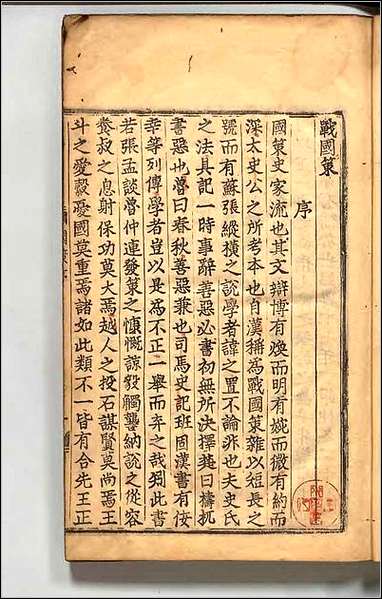 戰國策
序
國策史家流也其文辯博有煥而明有婉而微有約而
深太史公之所考本也自漢稱爲戰國策雜以短長之
號而有蘇張縱橫之說學者諱之置不論非也夫史氏
之法具記一時事辭善惡必書初無所決擇楚曰檮杌
書惡也魯曰春秋善惡兼也司馬史記班固漢書有佞
幸等列傳學者豈以是爲不正一舉而弃之哉矧此書
若張孟談魯仲連發策之慷慨諒毅觸讋納說之從容
養叔之息射保功莫大焉越人之投石謀賢莫尚焉王
斗之愛縠愛國莫重焉諸如此類不一皆有合先王正